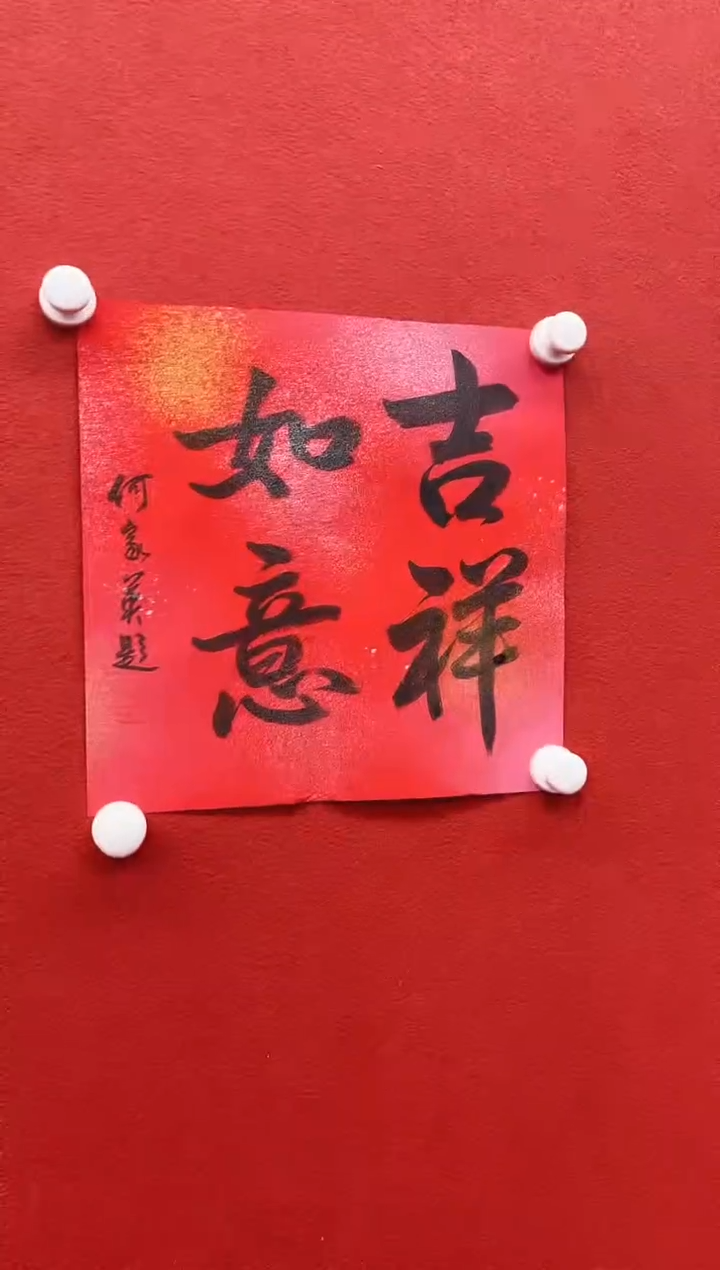 吉祥
如意
何家英题